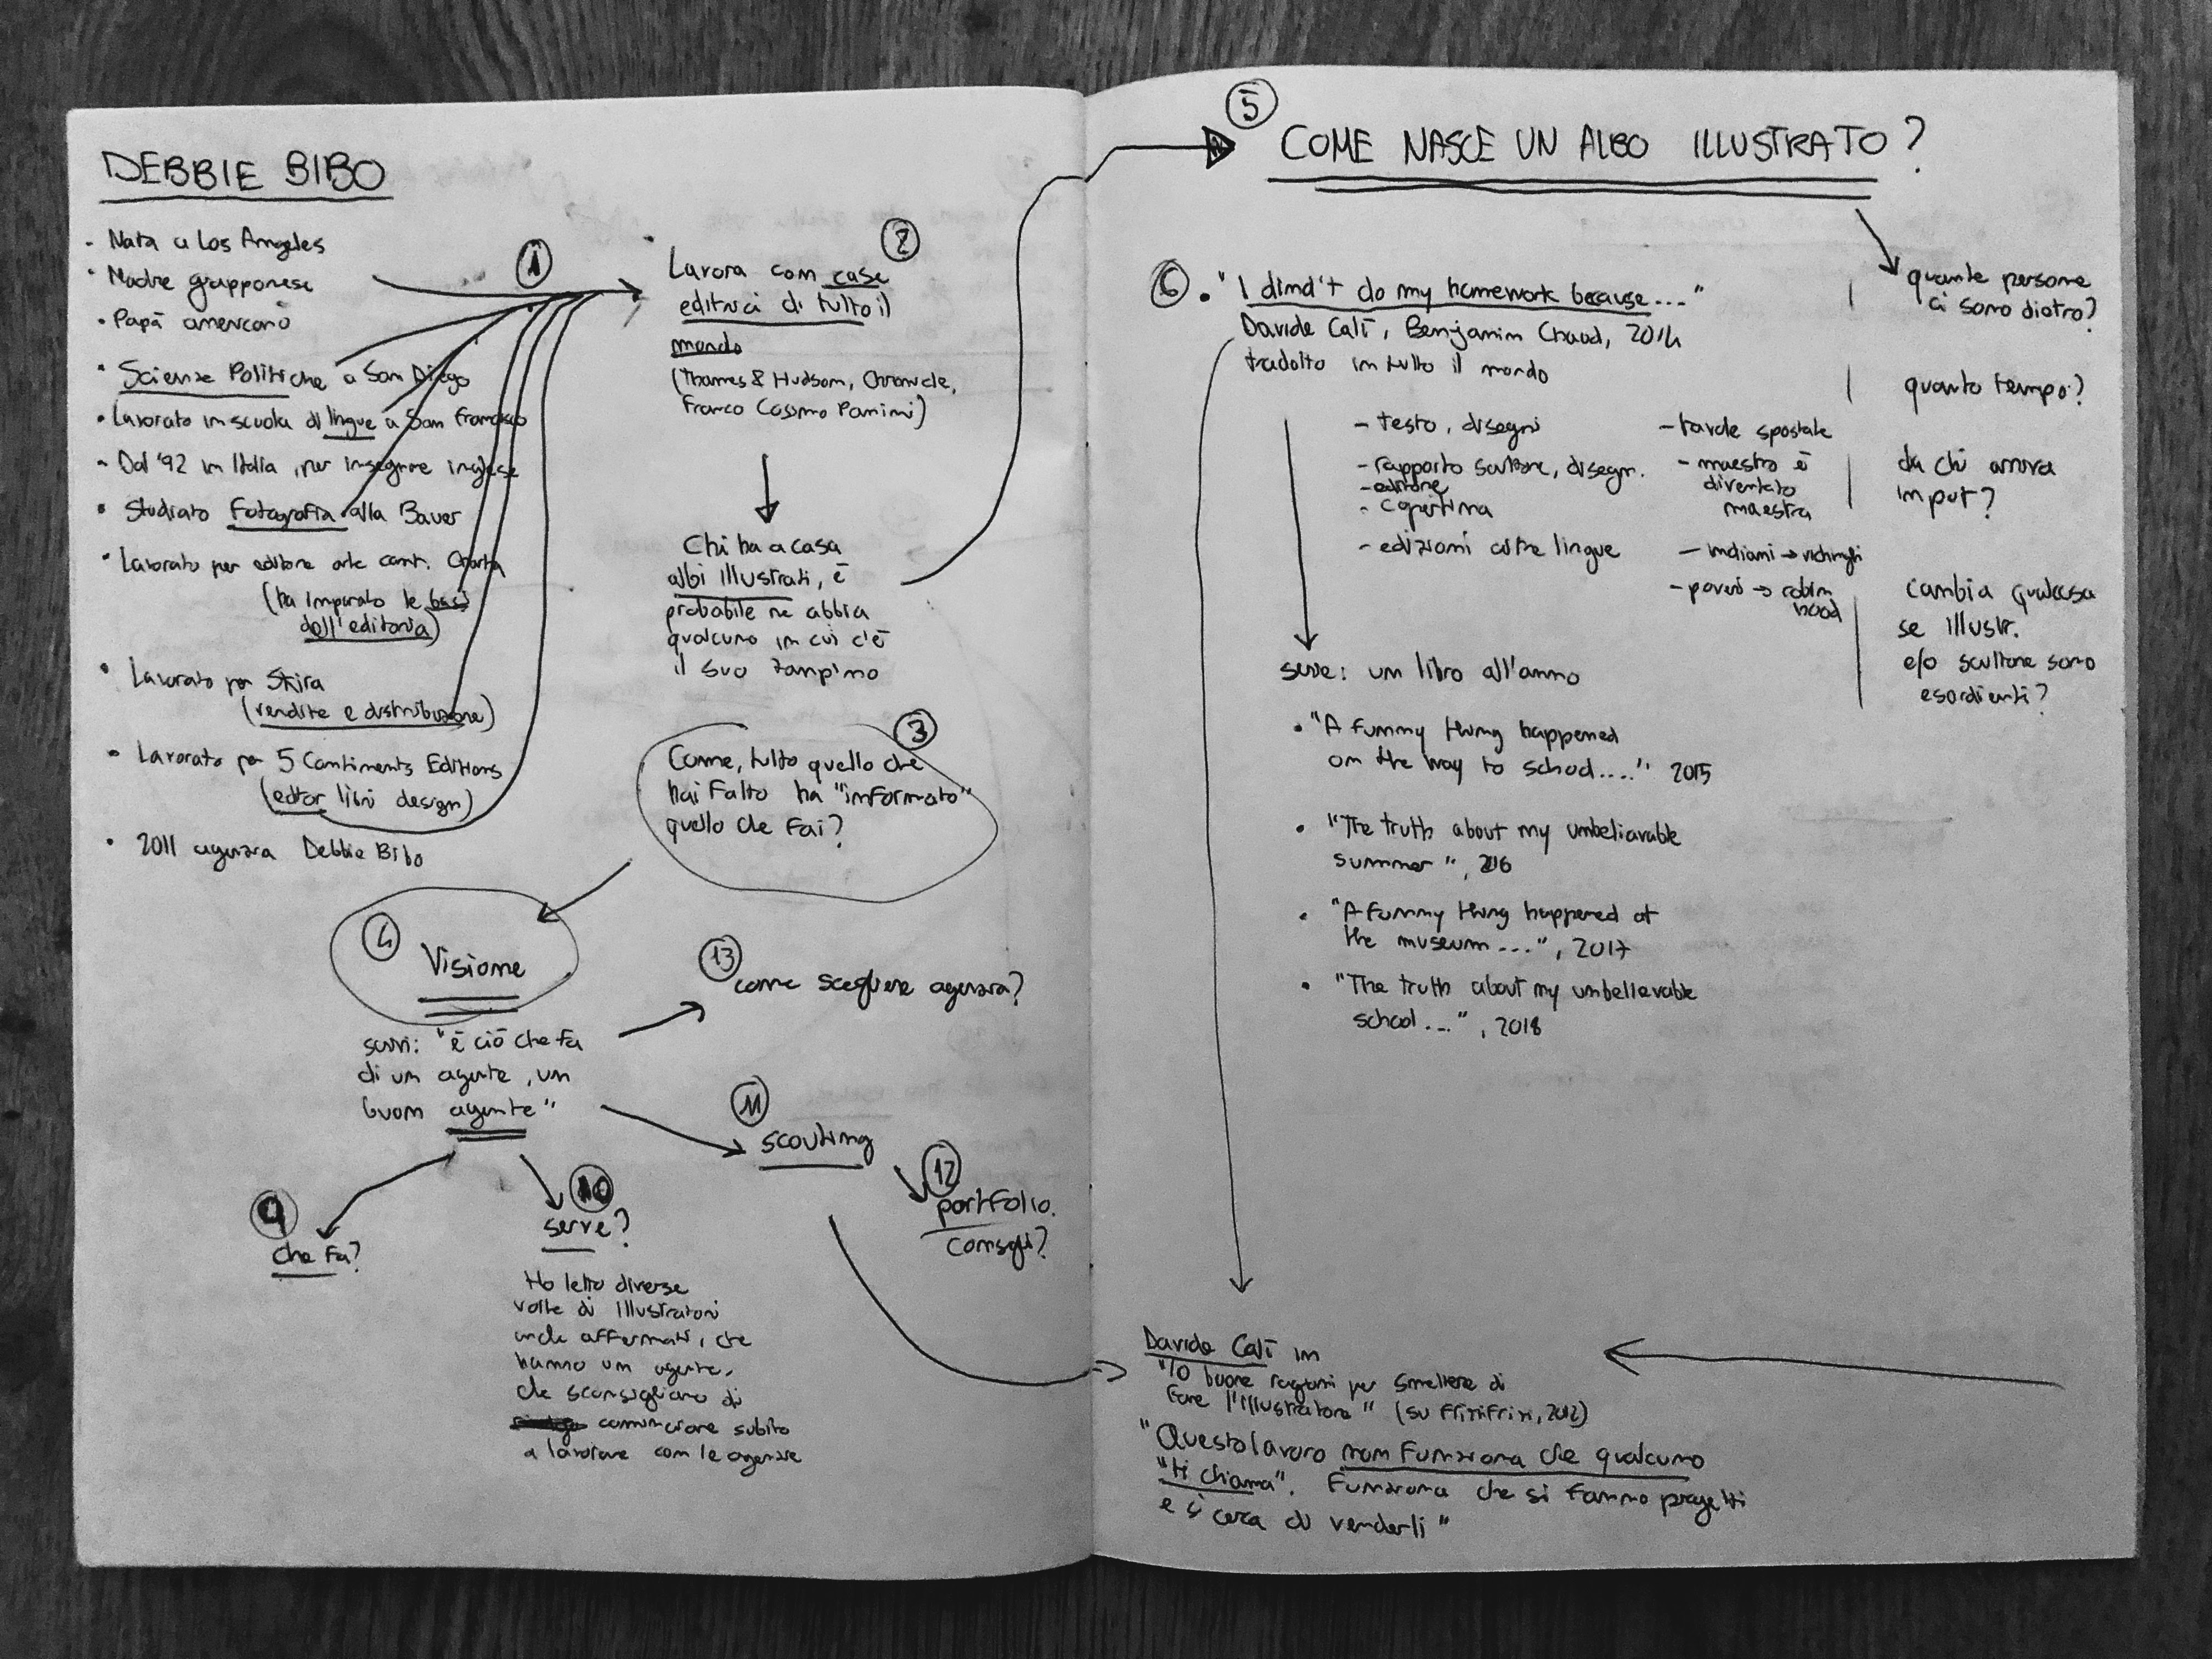 DEBBIE BIBO
- Nata a Los Angeles
• Madre giapponese
• Papà americano
• Scienze Politiche a San Diego
• Lavorato in scuola di lingue a San Francisco
- Dal '92 in Italia, per insegnare inglese
• Studiato Fotografia alla Bauer
• Lavorato per editore arte cont. Charta
(ha imparato le basi
dell'editoria)
• Lavorato per Skira
(vendite e distribuzione)
• Lavorato per 5 Continents Editions
(editor libri design)
• 2011 agenzia Debbie Bibo
1
2
Lavora con case
editrici di tutto il
mondo
(Thames & Hudson, Chronicle,
Franco Cosimo Panini)
Chi ha a casa
albi illustrati, è
probabile ne abbia
qualcuno in cui c'è
il suo zampino
3
Come, tutto quello che
hai fatto ha "informato"
quello che fai?
4
Visione
scrivi: "è ciò che fa
di un agente, un
buon agente"
13
come scegliere agenzia?
11
scouting
12
portfolio.
consigli?
9
che fa?
10
serve?
Ho letto diverse
volte di illustratori
anche affermati, che
hanno un agente,
che sconsigliano di
cominciare subito
a lavorare con le agenzie
5
COME NASCE UN ALBO ILLUSTRATO?
quante persone
ci sono dietro?
quanto tempo?
da chi arriva
input?
cambia qualcosa
se illustr.
e/o scrittore sono
esordienti?
6
• "I dind't do my homework because...."
Davide Calì, Benjamin Chaud, 2014
tradotto in tutto il mondo
- testo, disegni
- rapporto scrittore, disegn.
- editore
- copertina
- edizioni altre lingue
- tavole spostate
- maestro è
diventato
maestra
- indiani → vichinghi
- poveri → robin
hood
serie: un libro all'anno
• "A funny thing happened
on the way to school...." 2015
• "The truth about my unbeliavable
summer", 2016
• "A funny thing happened at
the museum...", 2017
• "The truth about my unbelievable
school...", 2018
Davide Calì in
"10 buone ragioni per smettere di
fare l'illustratore" (su Frizzifrizzi, 2012)
"Questo lavoro non funziona che qualcuno
"ti chiama". Funziona che si fanno progetti
e si cerca di venderli"